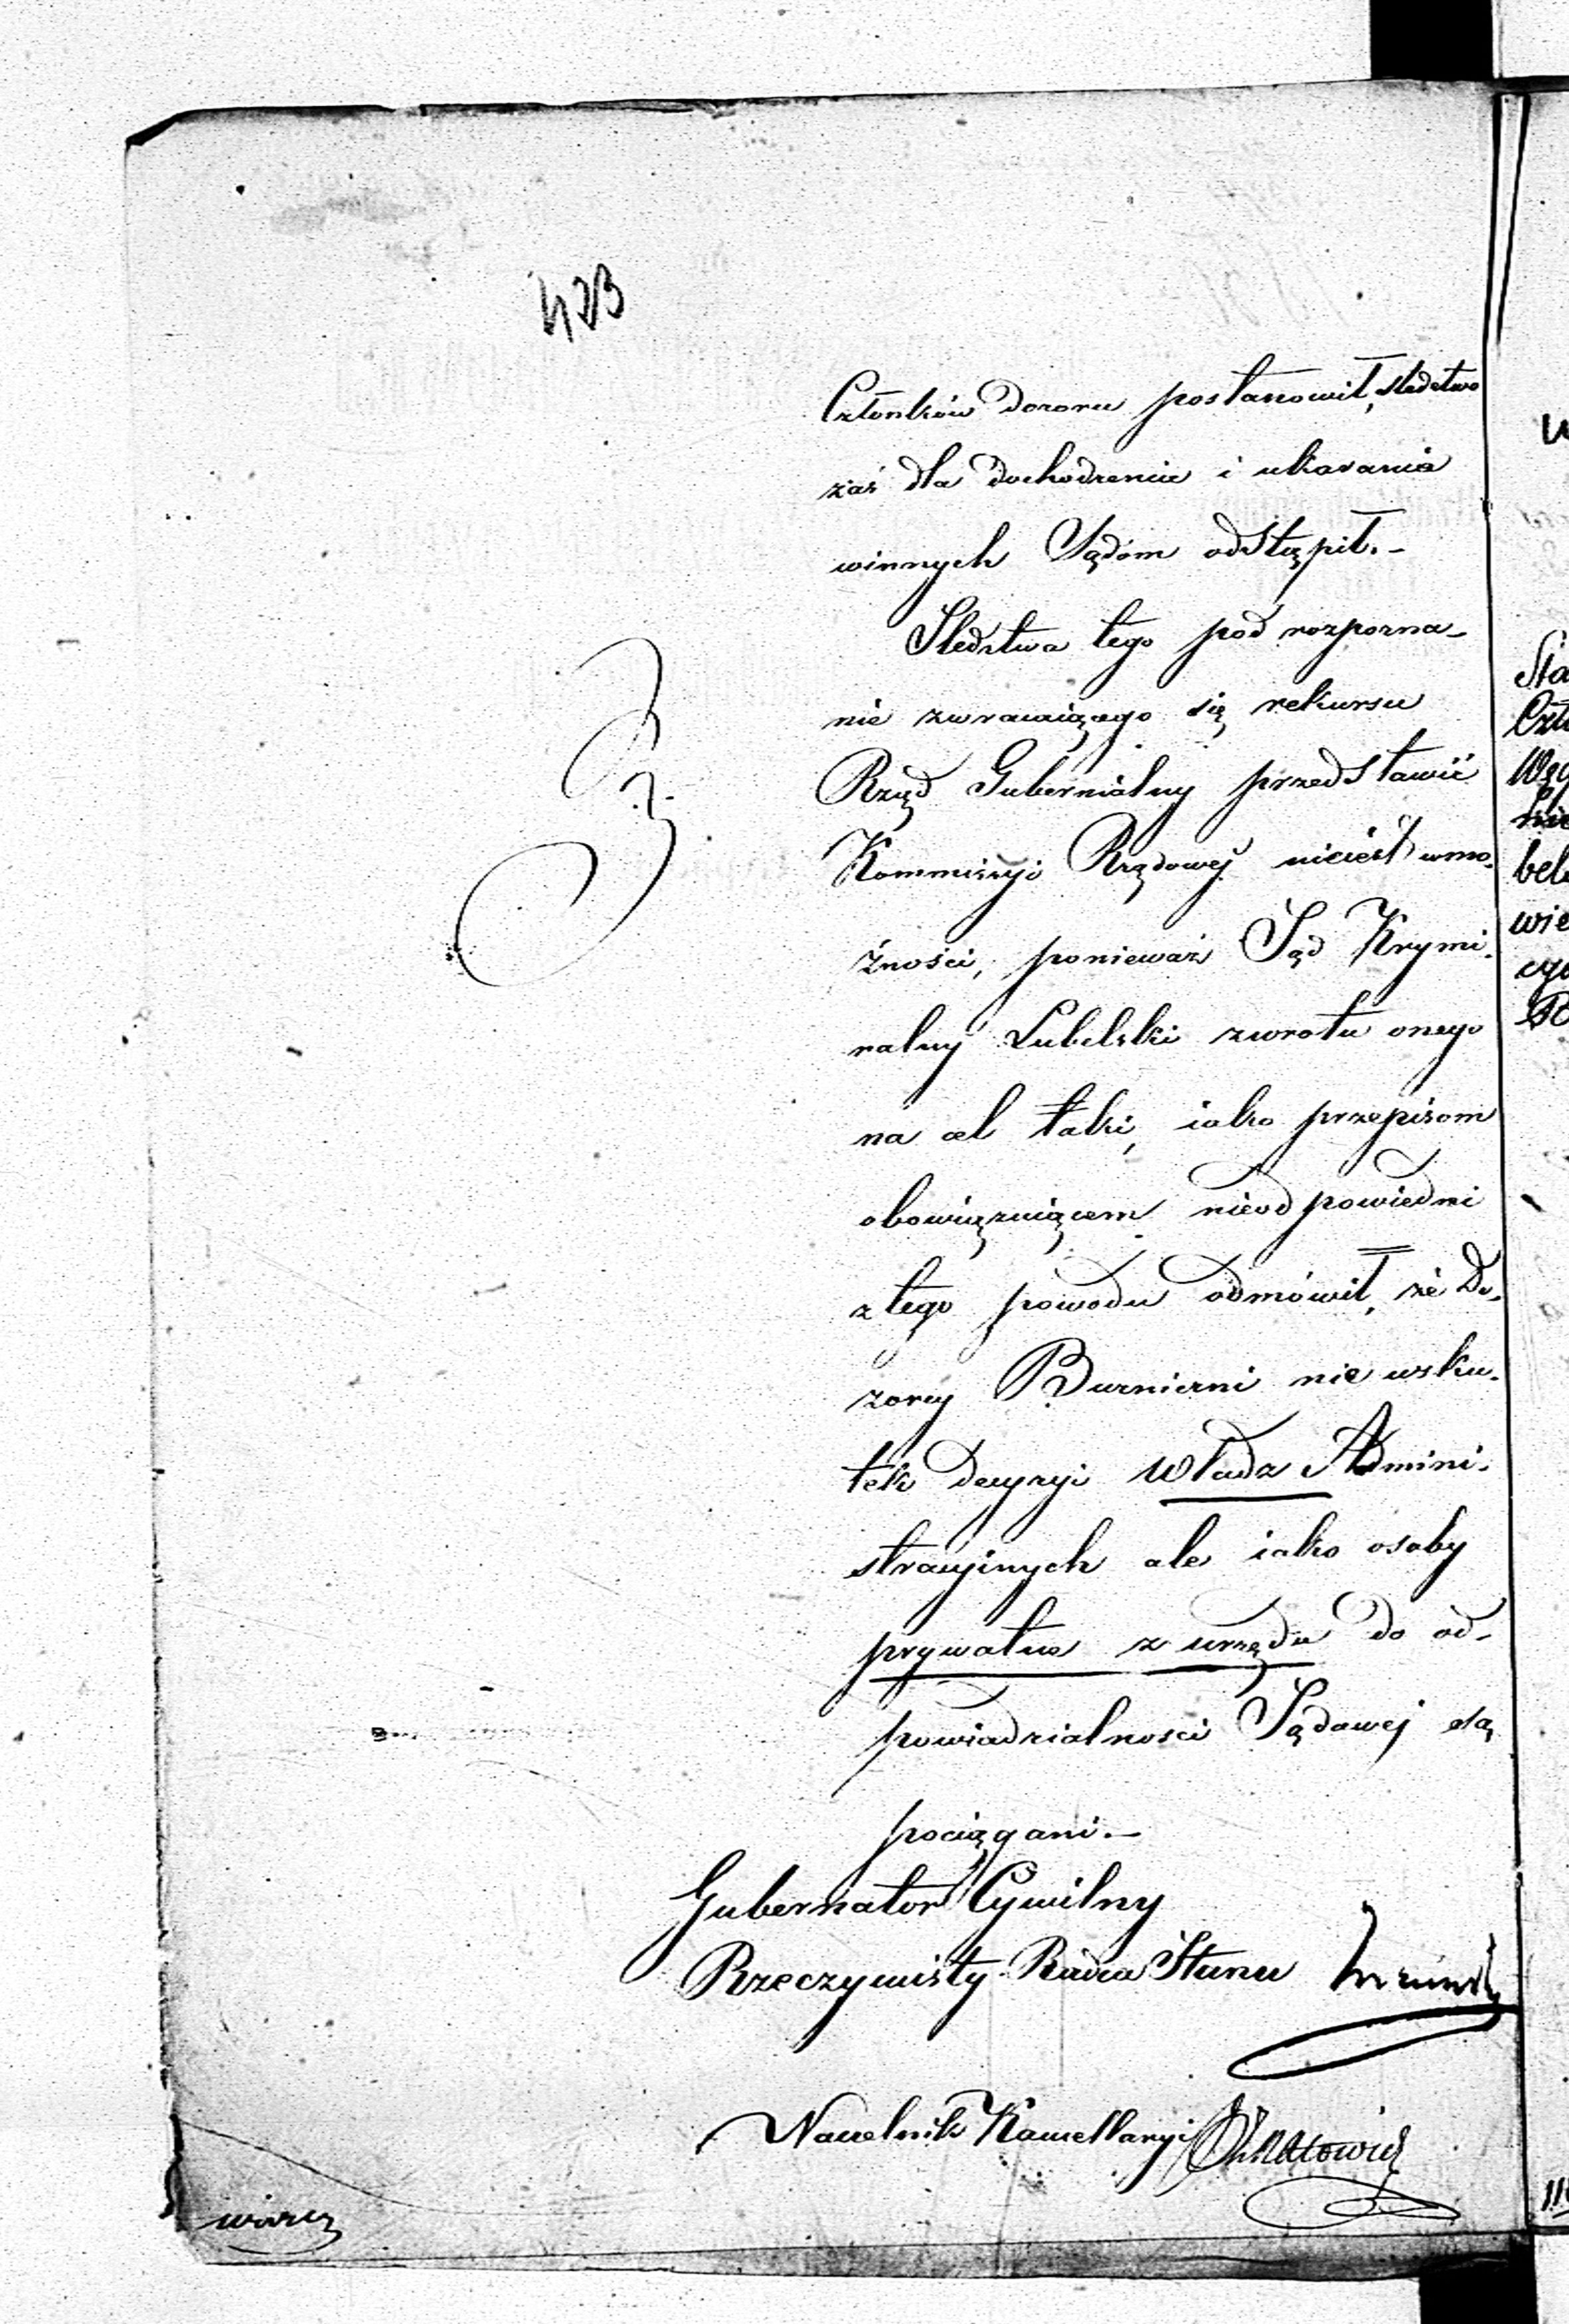 423
Członków dozoru postanowił, śledztwo
zaś dla dochodzenia i ukarania
winnych Sądóm odstąpił.-
Śledztwa tego pod rozpozna-
nie zwracaiącego się rekursu
Rząd Gubernialny przedstawić
Kommissyi Rządowej nieiest wmo-
żności, ponieważ Sąd Krymi-
nalny Lubelski zwrotu onego
na cel taki, iako przepisom
obowiązuiącem nieodpowiedni
z tego powodu odmówił, że Do-
zory Bużnicni nie wsku-
tek decyzyi Władz Admini-
stracyinych ale iako osoby
prywatne z urzędu do od-
powiedzialności Sądowej są
pociągani.-
Gubernator Cywilny
Rzeczywisty Radca Stanu
Naczelnik Kancellaryi